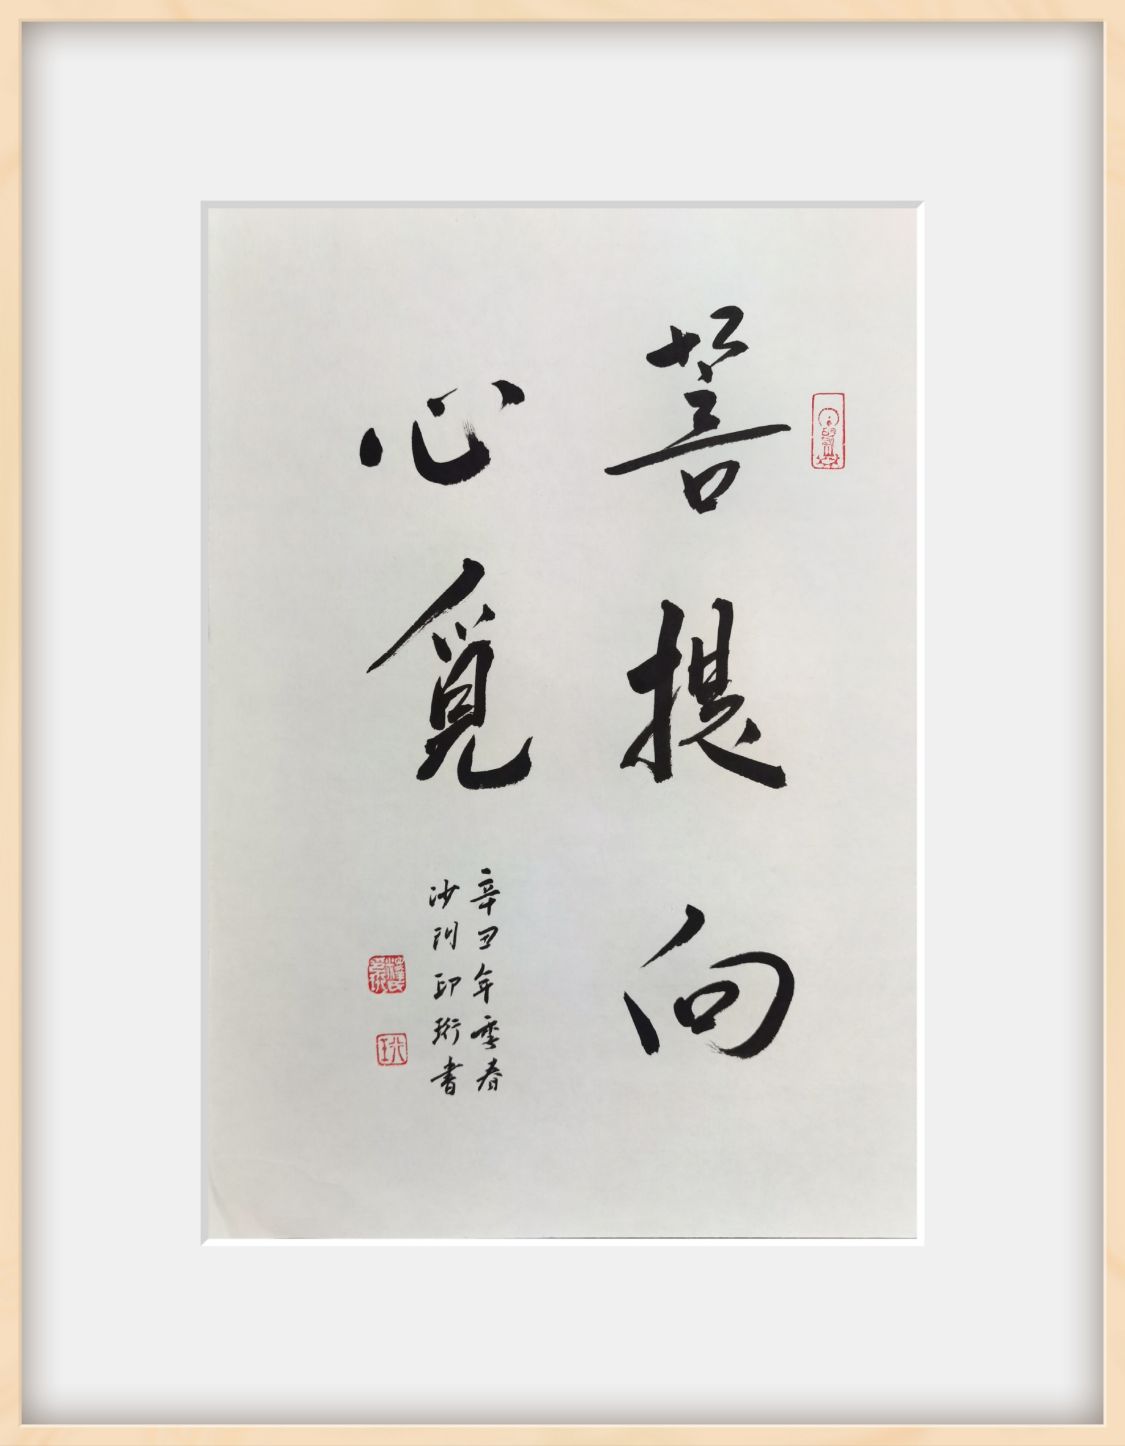 菩提向
心覓
辛丑年季春
沙門印珩書